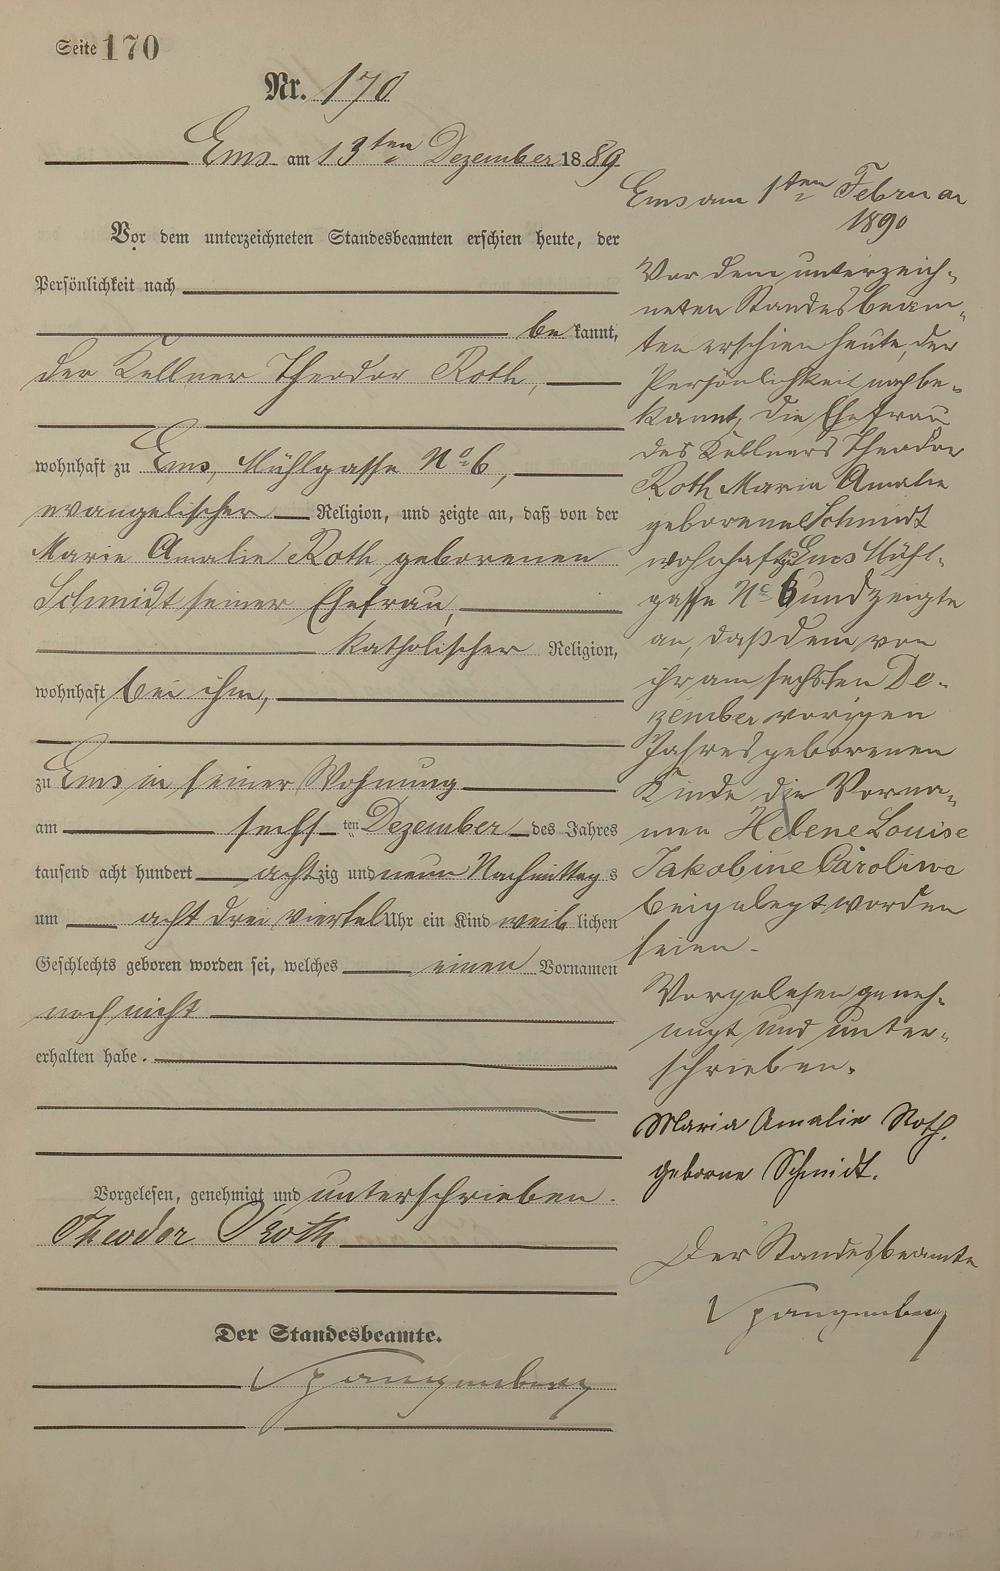 Seite 170
Nr. 170
Ems am 13ten Dezember 1889
Vor dem unterzeichneten Standesbeamten erschien heute, der
Persönlichkeit nach
bekannt,
der Kellner Theodor Roth,
wohnhaft zu Ems, Mühlgasse No 6,
evangelischer Religion, und zeigte an, daß von der
Marie Amalie Roth geborenen
Schmidt seiner Ehefrau,
katholischer Religion,
wohnhaft bei ihm,
zu Ems in seiner Wohnung
am sechsten Dezember des Jahres
tausend acht hundert achtzig und neun Nachmittags
um acht drei viertel Uhr ein Kind weiblichen
Geschlechts geboren worden sei, welches einen Vornamen
noch nicht
erhalten habe.
Vorgelesen, genehmigt und unterschrieben.
Theodor Roth
Der Standesbeamte.
Spangenberg
Ems am 1ten Februar
1890
Vor dem unterzeich-
neten Standesbeam-
ten erschien heute, der
Persönlichkeit nach be-
kannt, die Ehefrau
des Kellners Theodor
Roth Maria Amalie
geborene Schmidt
wohnhaft zu Ems Mühl-
gasse No 6 und zeigte
an, daß dem von
ihr am sechsten De-
zember vorigen
Jahres geborenen
Kinde die Vorna-
men Helene Louise
Jakobine Caroline
beigelegt worden
seien.
Vorgelesen geneh-
migt und unter-
schrieben.
Maria Amalie Roth.
geborne Schmidt.
Der Standesbeamte
Spangenberg